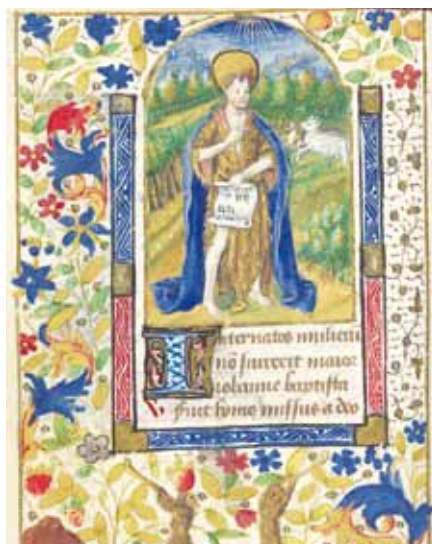 Internatos mulieru
nõ surrexit maior
iohanne baptista
fuit homo missus a deo